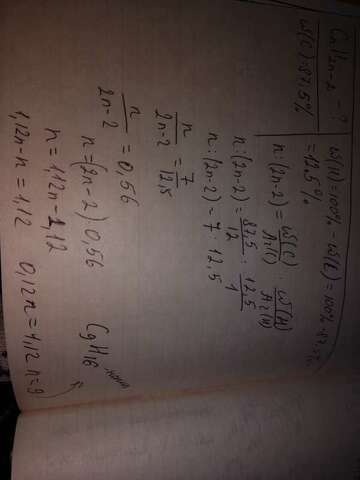 CnH2n-2 - ?
ω(C)=87,5%
ω(H)=100% - ω(C)=100%-87,5%=
=12,5%
n:(2n-2)=ω(C)/Ar(C) : ω(H)/Ar(H)
n:(2n-2)=87,5/12 : 12,5/1
n:(2n-2)=7:12,5
n/2n-2 = 7/12,5
n/2n-2 = 0,56
n=(2n-2)0,56
n=1,12n-1,12
1,12n-n=1,12 0,12n=1,12 n=9
C9H16